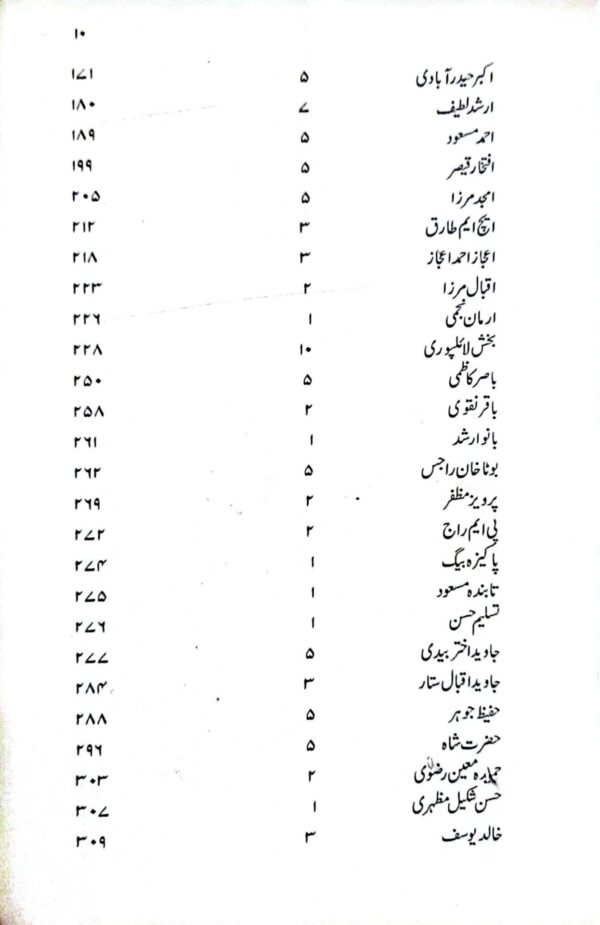 ۱۰
اکبر حیدرآبادی ۵ ۱۷۱
ارشد لطیف ۷ ۱۸۰
احمد مسعود ۵ ۱۸۹
افتخار قیصر ۵ ۱۹۹
امجد مرزا ۵ ۲۰۵
ایچ ایم طارق ۳ ۲۱۲
اعجاز احمد اعجاز ۳ ۲۱۸
اقبال مرزا ۲ ۲۲۳
ارمان نجمی ۱ ۲۲۶
بخش لائلپوری ۱۰ ۲۲۸
باصر کاظمی ۵ ۲۵۰
باقر نقوی ۲ ۲۵۸
بانو ارشد ۱ ۲۶۱
بوٹا خان راجس ۵ ۲۶۲
پرویز مظفر ۲ ۲۶۹
پی ایم راج ۲ ۲۷۲
پاکیزہ بیگ ۱ ۲۷۴
تابندہ مسعود ۱ ۲۷۵
تسلیم حسن ۱ ۲۷۶
جاوید اختر بیدی ۵ ۲۷۷
جاوید اقبال ستار ۳ ۲۸۴
حفیظ جوہر ۵ ۲۸۸
حضرت شاہ ۵ ۲۹۶
معین رضوی ۲ ۳۰۳
حسن شکیل مظہری ۱ ۳۰۷
خالد یوسف ۳ ۳۰۹